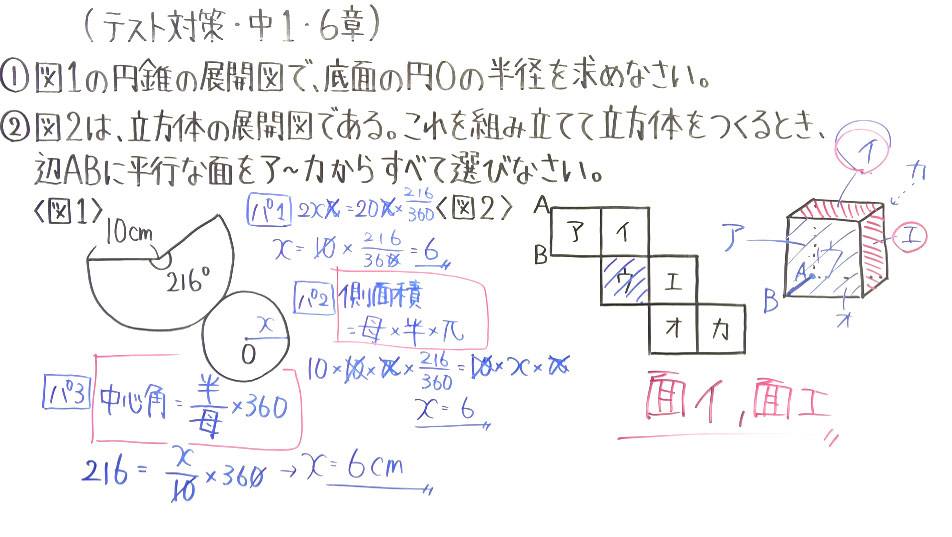 (テスト対策・中1・6章)
①図1の円錐の展開図で、底面の円Oの半径を求めなさい。
②図2は、立方体の展開図である。これを組み立てて立方体をつくるとき、
辺ABに平行な面をア~カからすべて選びなさい。
<図1>
10cm
216°
x
O
パ1 2πx=20π×216/360
x=10×216/360=6
パ2 側面積
=母×半×π
10×10×π×216/360=10×x×π
x=6
パ3 中心角=半/母×360
216=x/10×360→x=6cm
<図2>
A
B
ア イ
ウ エ
オ カ
イ
カ
ア
エ
ウ
A
B
オ
面イ,面エ